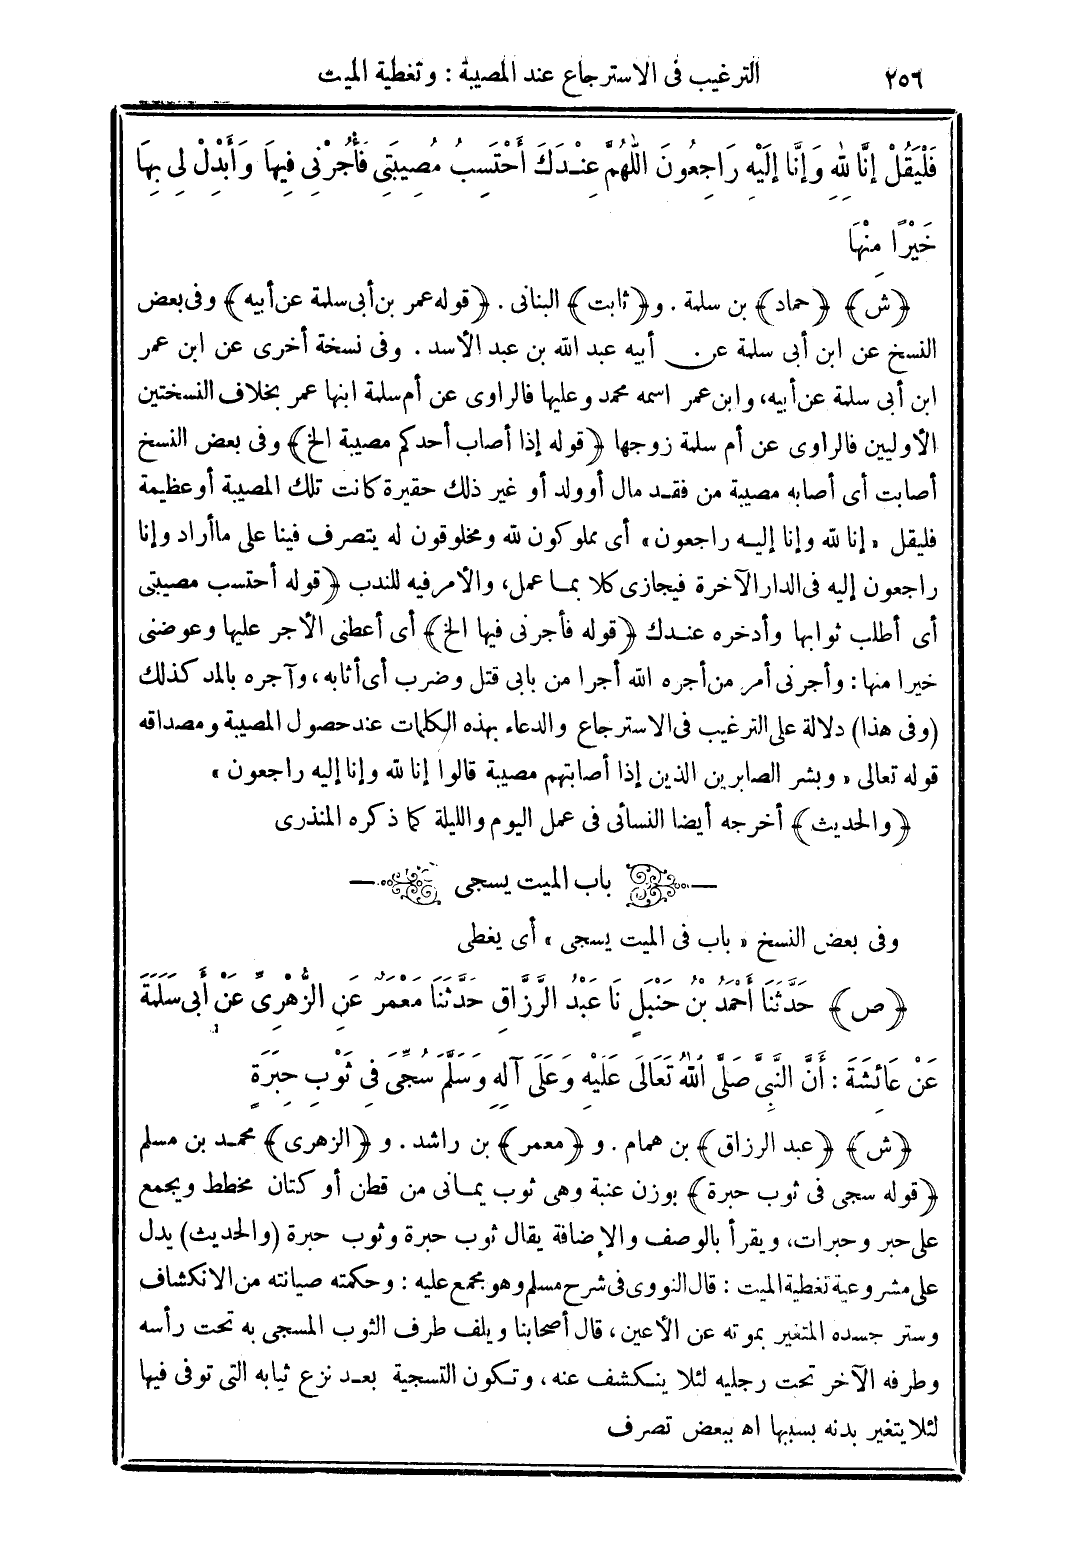 ٢٥٦ الترغيب فى الاسترجاع عند المصيبة : وتغطية الميت
فَلْيَقُلْ إِنَّا لِلّٰهِ وَإِنَّا إِلَيْهِ رَاجِعُونَ اللّٰهُمَّ عِنْدَكَ أَحْتَسِبُ مُصِيبَتِى فَأْجُرْنِى فِيهَا وَأَبْدِلْ لِى بِهَا
خَيْرًا مِنْهَا
﴿ش﴾ ﴿حماد﴾ بن سلمة . و﴿ثابت﴾ البنانى . ﴿قوله عمر بن أبى سلمة عن أبيه﴾ وفى بعض
النسخ عن ابن أبى سلمة عن أبيه عبد الله بن عبد الأسد . وفى نسخة أخرى عن ابن عمر
ابن أبى سلمة عن أبيه، وابن عمر اسمه محمد وعليها فالراوى عن أم سلمة ابنها عمر بخلاف النسختين
الأوليين فالراوى عن أم سلمة زوجها ﴿قوله إذا أصاب أحدكم مصيبة الخ﴾ وفى بعض النسخ
أصابت أى أصابه مصيبة من فقد مال أو ولد أو غير ذلك حقيرة كانت تلك المصيبة أو عظيمة
فليقل « إنا لله وإنا إليه راجعون » أى مملوكون لله ومخلوقون له يتصرف فينا على ما أراد وإنا
راجعون إليه فى الدار الآخرة فيجازى كلا بما عمل، والأمر فيه للندب ﴿قوله أحتسب مصيبتى
أى أطلب ثوابها وأدخره عندك ﴿قوله فأجرنى فيها الخ﴾ أى أعطنى الأجر عليها وعوضنى
خيرا منها : وأجرنى أمر من أجره الله أجرا من بابى قتل وضرب أى أثابه، وآجره بالمد كذلك
(وفى هذا) دلالة على الترغيب فى الاسترجاع والدعاء بهذه الكلمات عند حصول المصيبة ومصداقه
قوله تعالى « وبشر الصابرين الذين إذا أصابتهم مصيبة قالوا إنا لله وإنا إليه راجعون »
﴿والحديث﴾ أخرجه أيضا النسائى فى عمل اليوم والليلة كما ذكره المنذرى
باب الميت يسجى
وفى بعض النسخ « باب فى الميت يسجى » أى يغطى
﴿ص﴾ حَدَّثَنَا أَحْمَدُ بْنُ حَنْبَلٍ نَا عَبْدُ الرَّزَّاقِ حَدَّثَنَا مَعْمَرٌ عَنِ الزُّهْرِىِّ عَنْ أَبِى سَلَمَةَ
عَنْ عَائِشَةَ : أَنَّ النَّبِىَّ صَلَّى اللّٰهُ تَعَالَى عَلَيْهِ وَعَلَى آلِهِ وَسَلَّمَ سُجِّىَ فِى ثَوْبِ حِبَرَةٍ
﴿ش﴾ ﴿عبد الرزاق﴾ بن همام . و ﴿معمر﴾ بن راشد . و ﴿الزهرى﴾ محمد بن مسلم
﴿قوله سجى فى ثوب حبرة﴾ بوزن عنبة وهى ثوب يمانى من قطن أو كتان مخطط ويجمع
على حبر وحبرات، ويقرأ بالوصف والإضافة يقال ثوب حبرة وثوب حبرة (والحديث) يدل
على مشروعية تغطية الميت : قال النووى فى شرح مسلم وهو مجمع عليه : وحكمته صيانته من الانكشاف
وستر جسده المتغير بموته عن الأعين، قال أصحابنا ويلف طرف الثوب المسجى به تحت رأسه
وطرفه الآخر تحت رجليه لئلا ينكشف عنه، وتكون التسجية بعد نزع ثيابه التى توفى فيها
لئلا يتغير بدنه بسببها اه ببعض تصرف